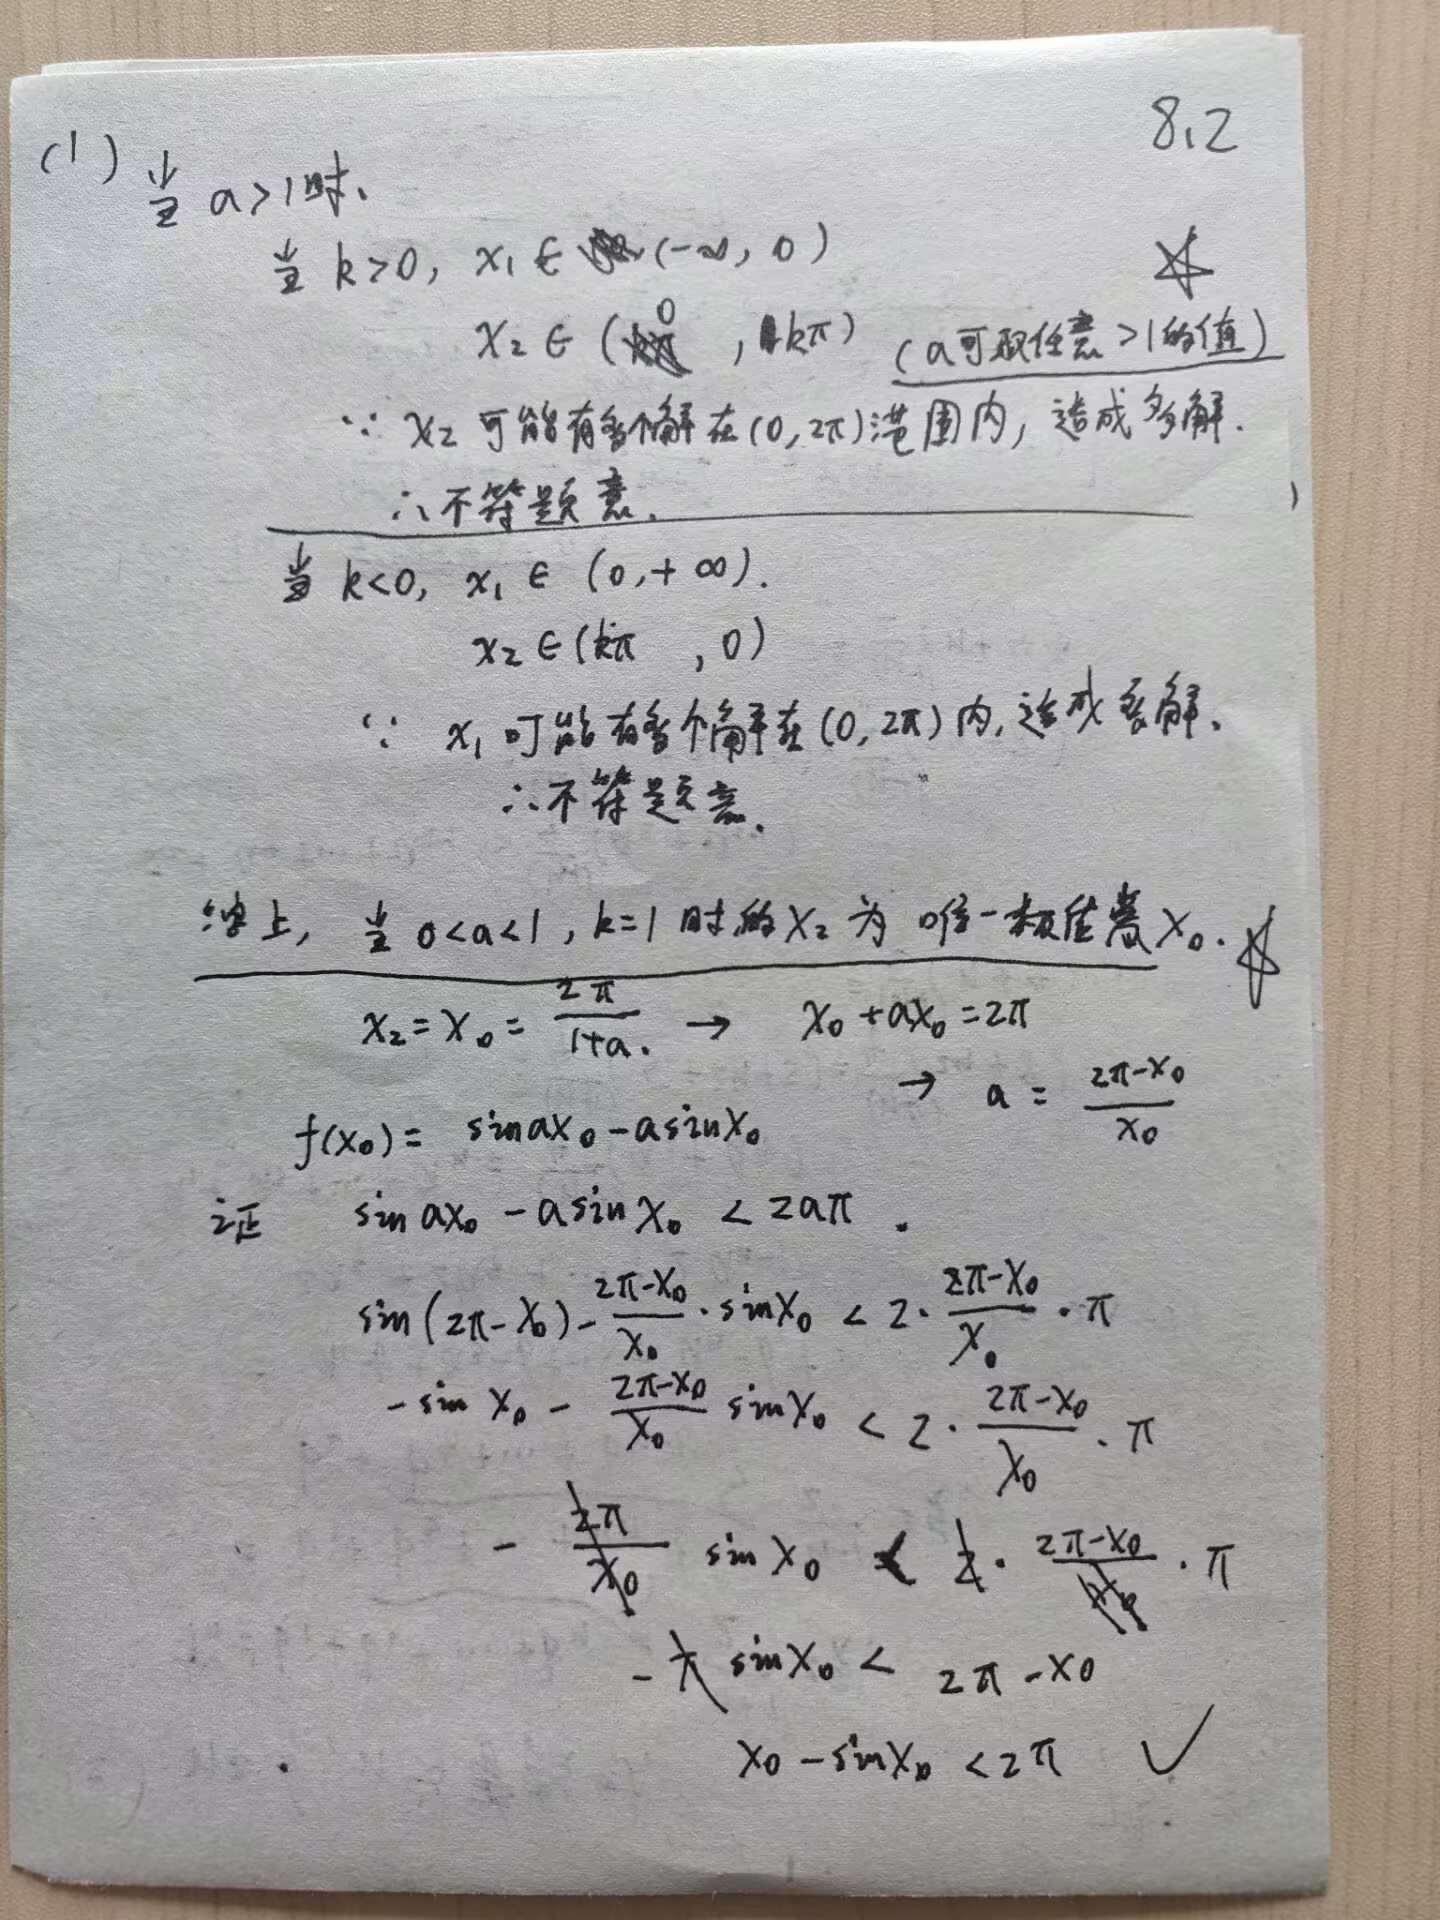 8.2
(1) 当 a>1时、
当 k>0, x₁ ∈ (-∞, 0)
x₂ ∈ (0, kπ) (a可取任意>1的值)
∵ x₂ 可能有多个解在(0,2π)范围内, 造成多解.
∴不符题意.
当 k<0, x₁ ∈ (0,+∞).
x₂ ∈(kπ, 0)
∵ x₁ 可能有多个解在(0,2π)内,造成多解.
∴不符题意.
综上, 当 0<a<1, k=1 时的 x₂ 为 唯一极值点 x₀.
x₂ = x₀ = 2π/(1+a). → x₀+ax₀=2π
→ a = (2π-x₀)/x₀
f(x₀) = sinax₀ - asinx₀
证 sin ax₀ - a sin x₀ < 2aπ.
sin(2π-x₀) - (2π-x₀)/x₀ · sinx₀ < 2 · (2π-x₀)/x₀ · π
-sin x₀ - (2π-x₀)/x₀ sinx₀ < 2 · (2π-x₀)/x₀ · π
- 2π/x₀ sin x₀ < 2 · (2π-x₀)/x₀ · π
-π sinx₀ < 2π-x₀
x₀ - sinx₀ < 2π ✓